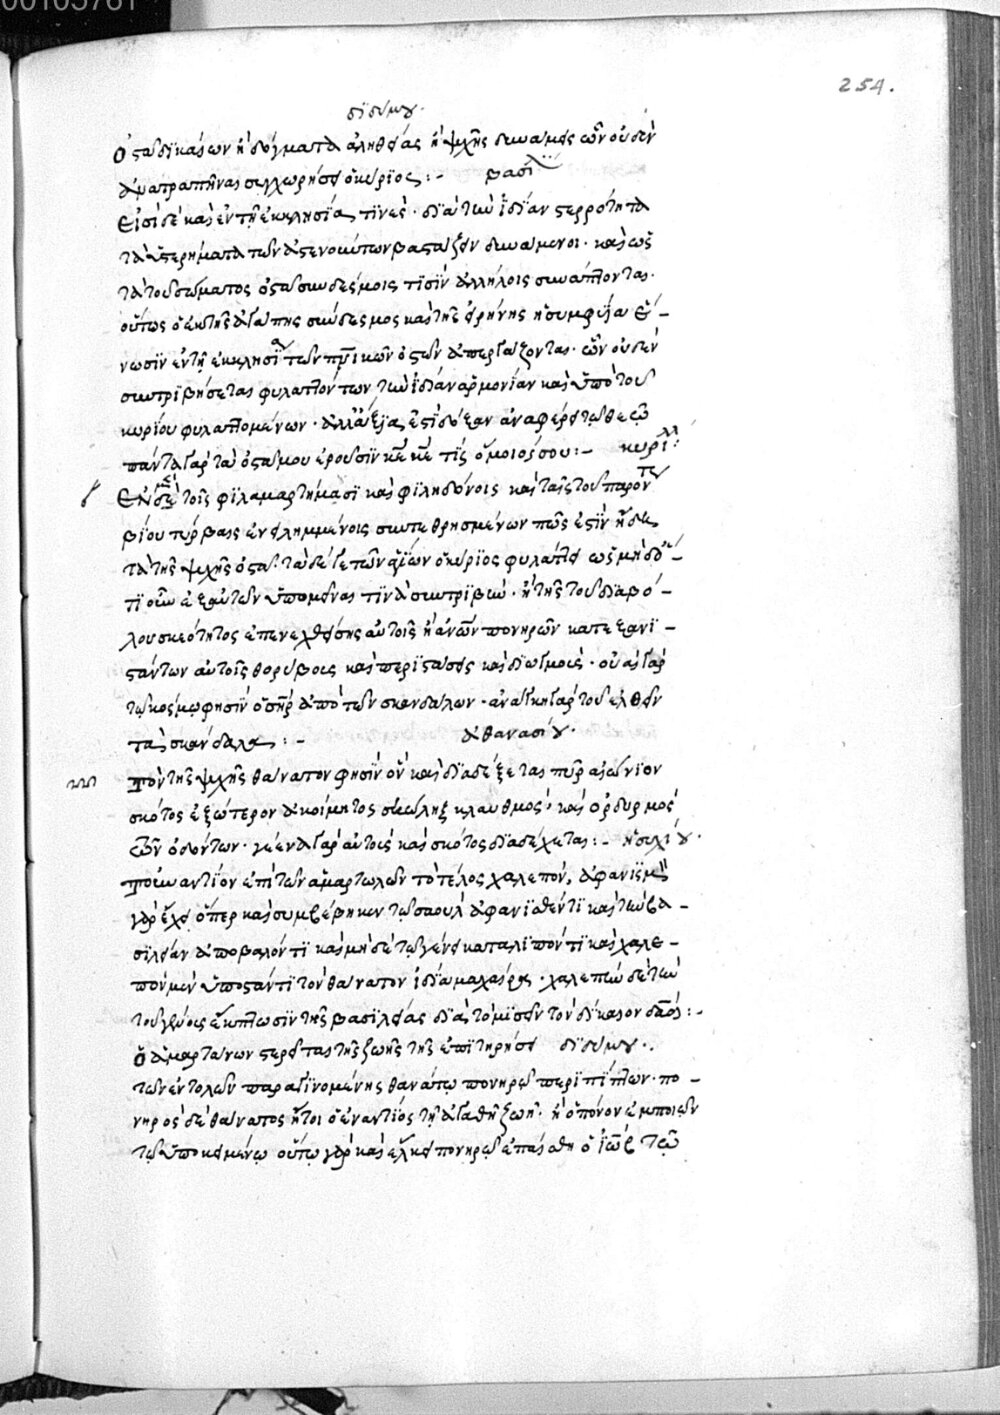 00105761
254.
διδύμου·
Ὀστᾶ δικαίων ἢ δόγματα ἀληθείας ἢ ψυχῆς δυνάμεις ὧν οὐδὲν
διατραπῆναι συγχωρήσει ὁ κύριος :- βασιλ
Εἰσὶ δὲ καὶ ἐν τῇ ἐκκλησίᾳ τινὲς · διὰ τὴν ἰδίαν στερρότητα
τὰ ὑστερήματα τῶν ἀσθενούντων βαστάζειν δυνάμενοι · καὶ ὡς
τὰ τοῦ σώματος ὀστᾶ συνδέσμοις τισὶν ἀλλήλοις συνάπτονται·
οὕτως ὁ ἐκ τῆς ἀγάπης σύνδεσμος καὶ τῆς εἰρήνης ἡ συμφυΐα ἕ-
νωσιν ἐν τῇ ἐκκλησίᾳ τῶν πνικῶν ὀστῶν ἀπεργάζονται · ὧν οὐδὲν
συντριβήσεται φυλαττόντων τὴν ἰδίαν ἁρμονίαν καὶ ὑπὸ τοῦ
κυρίου φυλαττομένων · ἀλλ' ἄξια ἔτι δόξαν ἀναφέρει τῷ θεῷ
πάντα γὰρ τὰ ὀστᾶ μου ἐροῦσιν κε κε τίς ὅμοιός σου :- κυριλλ :
Ἐν μὲν τοῖς φιλαμαρτήμασι καὶ φιληδόνοις καὶ ταῖς τοῦ παρόντος
βίου τύρβαις ἐνειλημμένοις συντεθρησμένων πῶς ἐστὶν ἤδη
τὰ τῆς ψυχῆς ὀστᾶ · τὰ δέ γε τῶν ἁγίων ὁ κύριος φυλάττει ὡς μὴ δ-
τιοῦν ἐξ αὐτῶν ὑπομεῖναι τινὰ συντριβὴν · ἢ τῆς τοῦ διαβό-
λου σκαιότητος ἐπενεχθείσης αὐτοῖς ἢ ἀνων πονηρῶν κατεξανι-
στάντων αὐτοῖς θορύβους καὶ περιστάσεις καὶ διωγμούς · οὐαὶ γὰρ
τῷ κόσμῳ φησὶν ὁ σηρ ἀπὸ τῶν σκανδάλων · ἀνάγκη γὰρ τοῦ ἐλθεῖν
τὰ σκάνδαλα :- ἀθανασίου·
Τὸν τῆς ψυχῆς θάνατον φησὶν ὃν καὶ διαδέξεται πῦρ αἰώνιον
σκότος ἐξώτερον ἀκοίμητος σκώληξ κλαυθμὸς καὶ ὁ βρυγμὸς
τῶν ὀδόντων · γέεννα γὰρ αὐτοὺς καὶ σκότος διαδέχεται :- ἡσυχίου·
Τοὐναντίον ἐπὶ τῶν ἁμαρτωλῶν τὸ τέλος χαλεπόν, ἀφανισμὸν
γὰρ ἔχει ὅπερ καὶ συμβέβηκεν τῷ σαοὺλ ἀφανισθέντι καὶ τὴν βα-
σιλείαν ἀποβαλόντι καὶ μηδὲ τῷ γένει καταλιπόντι καὶ χαλε-
πὸν μὲν ὑποστάντι τὸν θάνατον ἰδίᾳ μαχαίρᾳ · χαλεπὴν δὲ τὴν
τοῦ γένους ἔκπτωσιν τῆς βασιλείας διὰ τὸ μισεῖν τὸν δίκαιον δαδ :-
Ὁ ἁμαρτάνων στερεῖται τῆς ζωῆς τῆς ἐπιτηρήσει διδύμου·
τῶν ἐντολῶν παραγινομένης θανάτῳ πονηρῷ περιπίπτων · πο-
νηρὸς δὲ θάνατος ἤτοι ὁ ἐναντίος τῇ ἀγαθῇ ζωῇ · ἢ ὁ πόνον ἐμποιῶν
τῷ ὑποκειμένῳ οὕτω γὰρ καὶ ἕλκει πονηρῷ ἐπαίσθη ὁ ἰὼβ τῷ